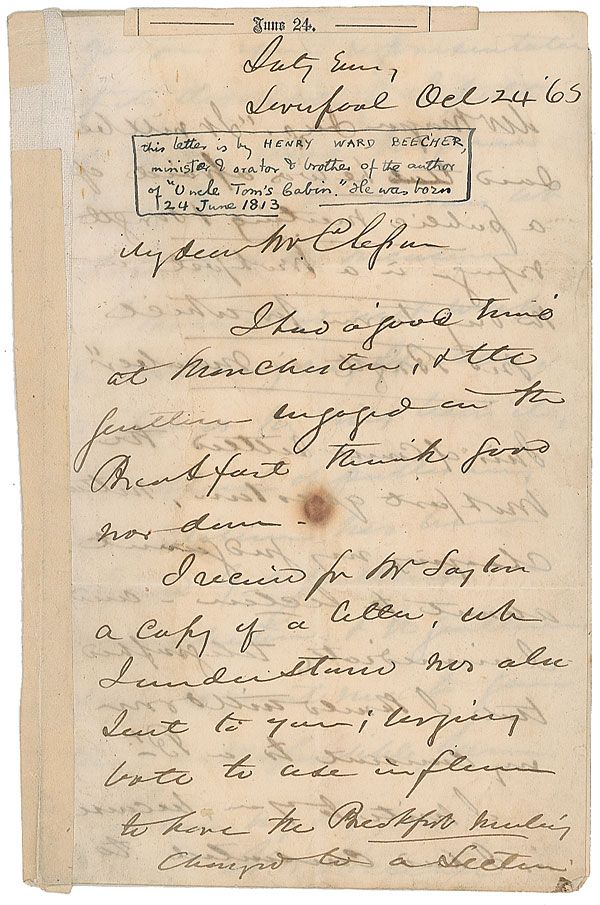 June 24.
Saty Eve,
Liverpool Oct 24 '63
this letter is by HENRY WARD BEECHER,
minister & orator & brother of the author
of "Uncle Tom's Cabin." He was born
24 June 1813
My dear Mr
I had a good time
at Manchester, & the
gentlemen engaged in the
Breakfast think good
was done.
I received fr Mr
a copy of a letter, wh
I understand was also
sent to you; urging
both to use influence
to have the Breakfast Meeting
changed to a Lecture